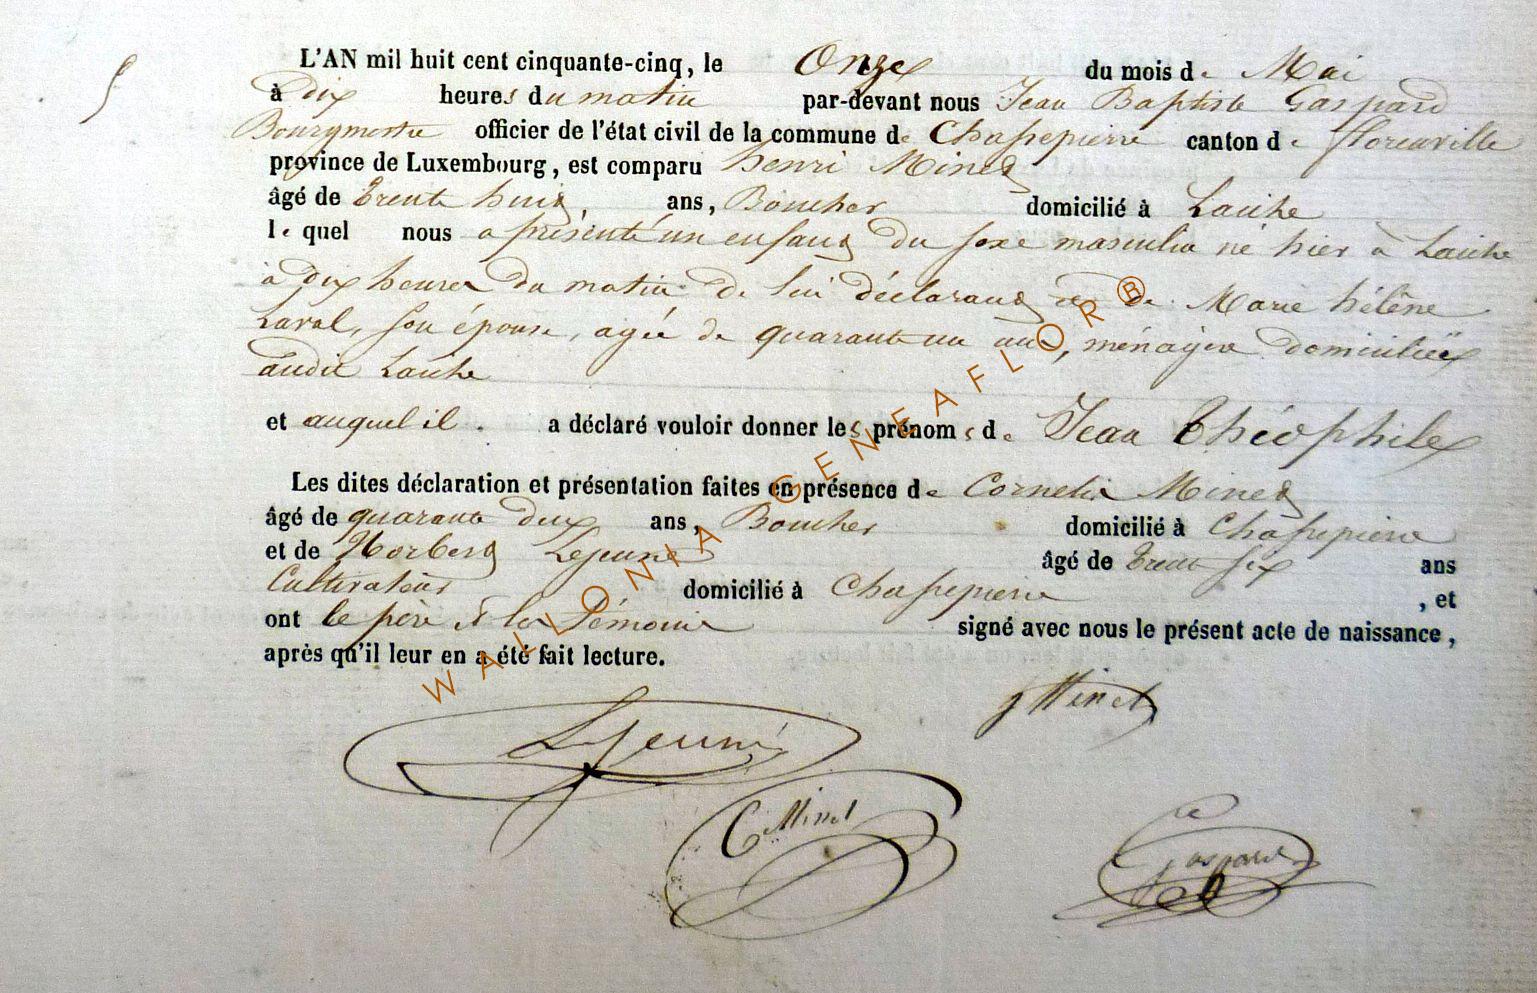 5
L'AN mil huit cent cinquante-cinq, le Onze du mois de Mai
à dix heures du matin par-devant nous Jean Baptiste Gaspard
Bourgmestre officier de l'état civil de la commune de Chassepierre canton de florenville
province de Luxembourg, est comparu henri Minet
âgé de trente huit ans, Boucher domicilié à Laiche
lequel nous a présenté un enfant du sexe masculin né hier à Laiche
à dix heures du matin de lui déclarant et de Marie hélène
Laval, son épouse, agée de quarante un ans, ménagère domiciliée
audit Laiche
et auquel il a déclaré vouloir donner les prénoms de Jean Théophile
Les dites déclaration et présentation faites en présence de Cornelis Minet
âgé de quarante deux ans, Boucher domicilié à Chassepierre
et de Norbert Lejeune âgé de trente six ans
Cultivateur domicilié à Chassepierre, et
ont le père et les témoins signé avec nous le présent acte de naissance,
après qu'il leur en a été fait lecture.
WALLONIA GENEAFLOR®
Minet
Lejeune
C Minet
Gaspard